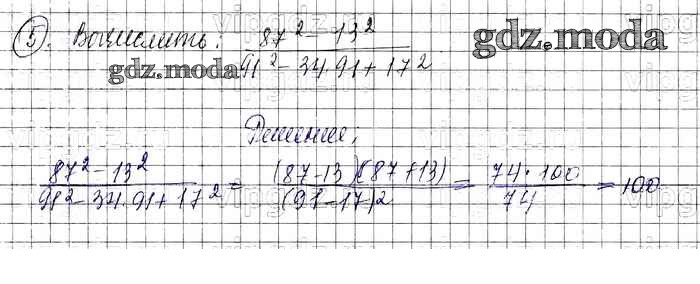 5. Вычислить: (87² - 13²)/(91² - 34·91 + 17²)
gdz.moda
gdz.moda
Решение:
(87² - 13²)/(91² - 34·91 + 17²) = ((87-13)(87+13))/((91-17)²) = (74·100)/74 = 100